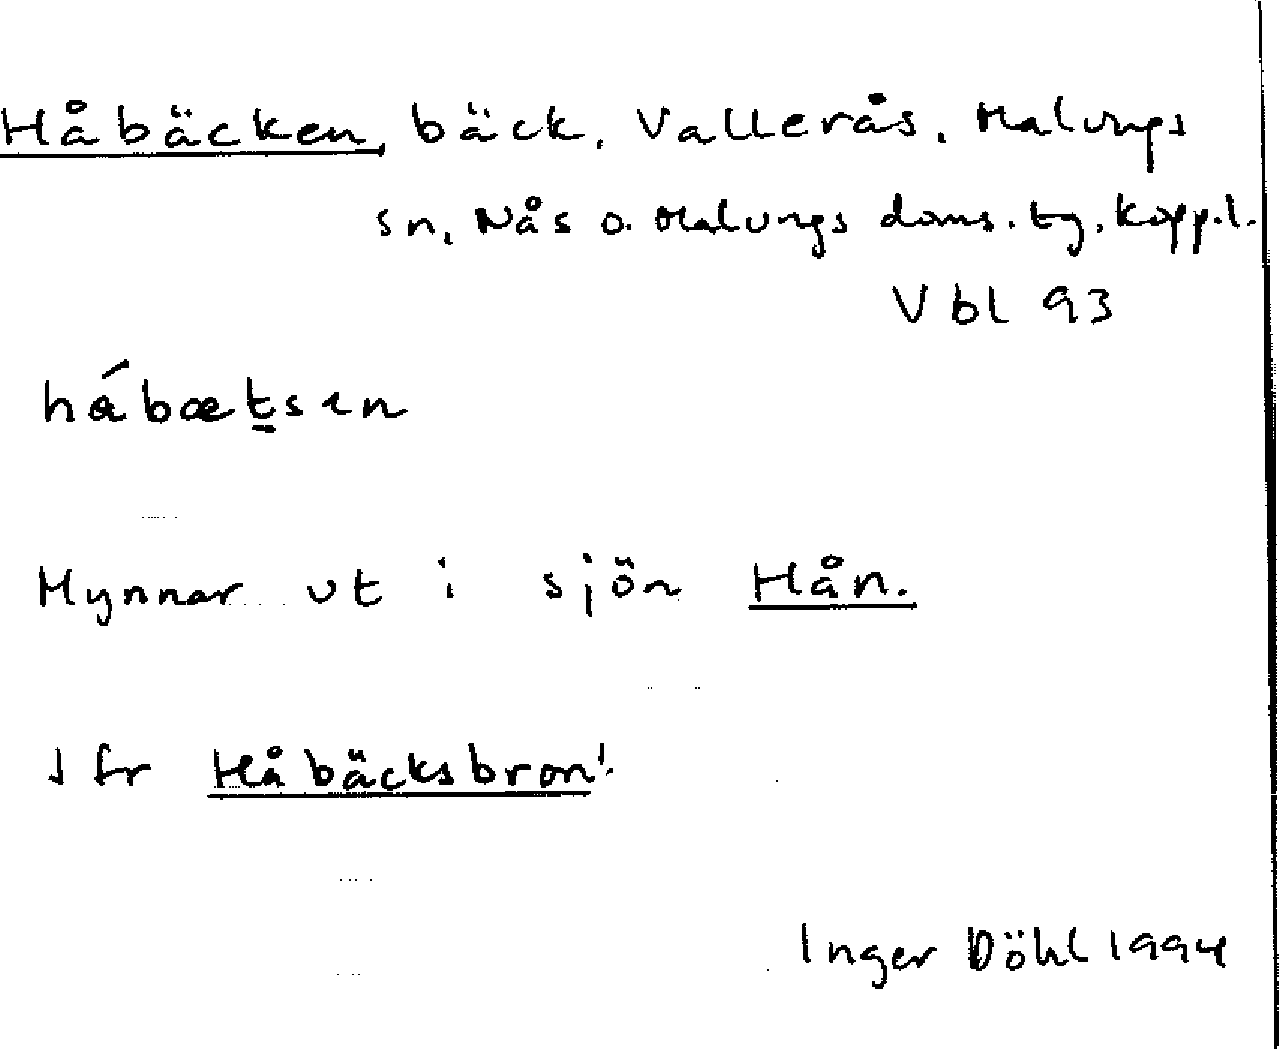 Håbäcken, bäck, Vallerås, Malungs
sn, Nås o. Malungs doms. tg, Kopp.l.
Vbl 93
hábætsen
Mynnar ut i sjön Hån.
Jfr Håbäcksbron!
Inger Döhl 1994